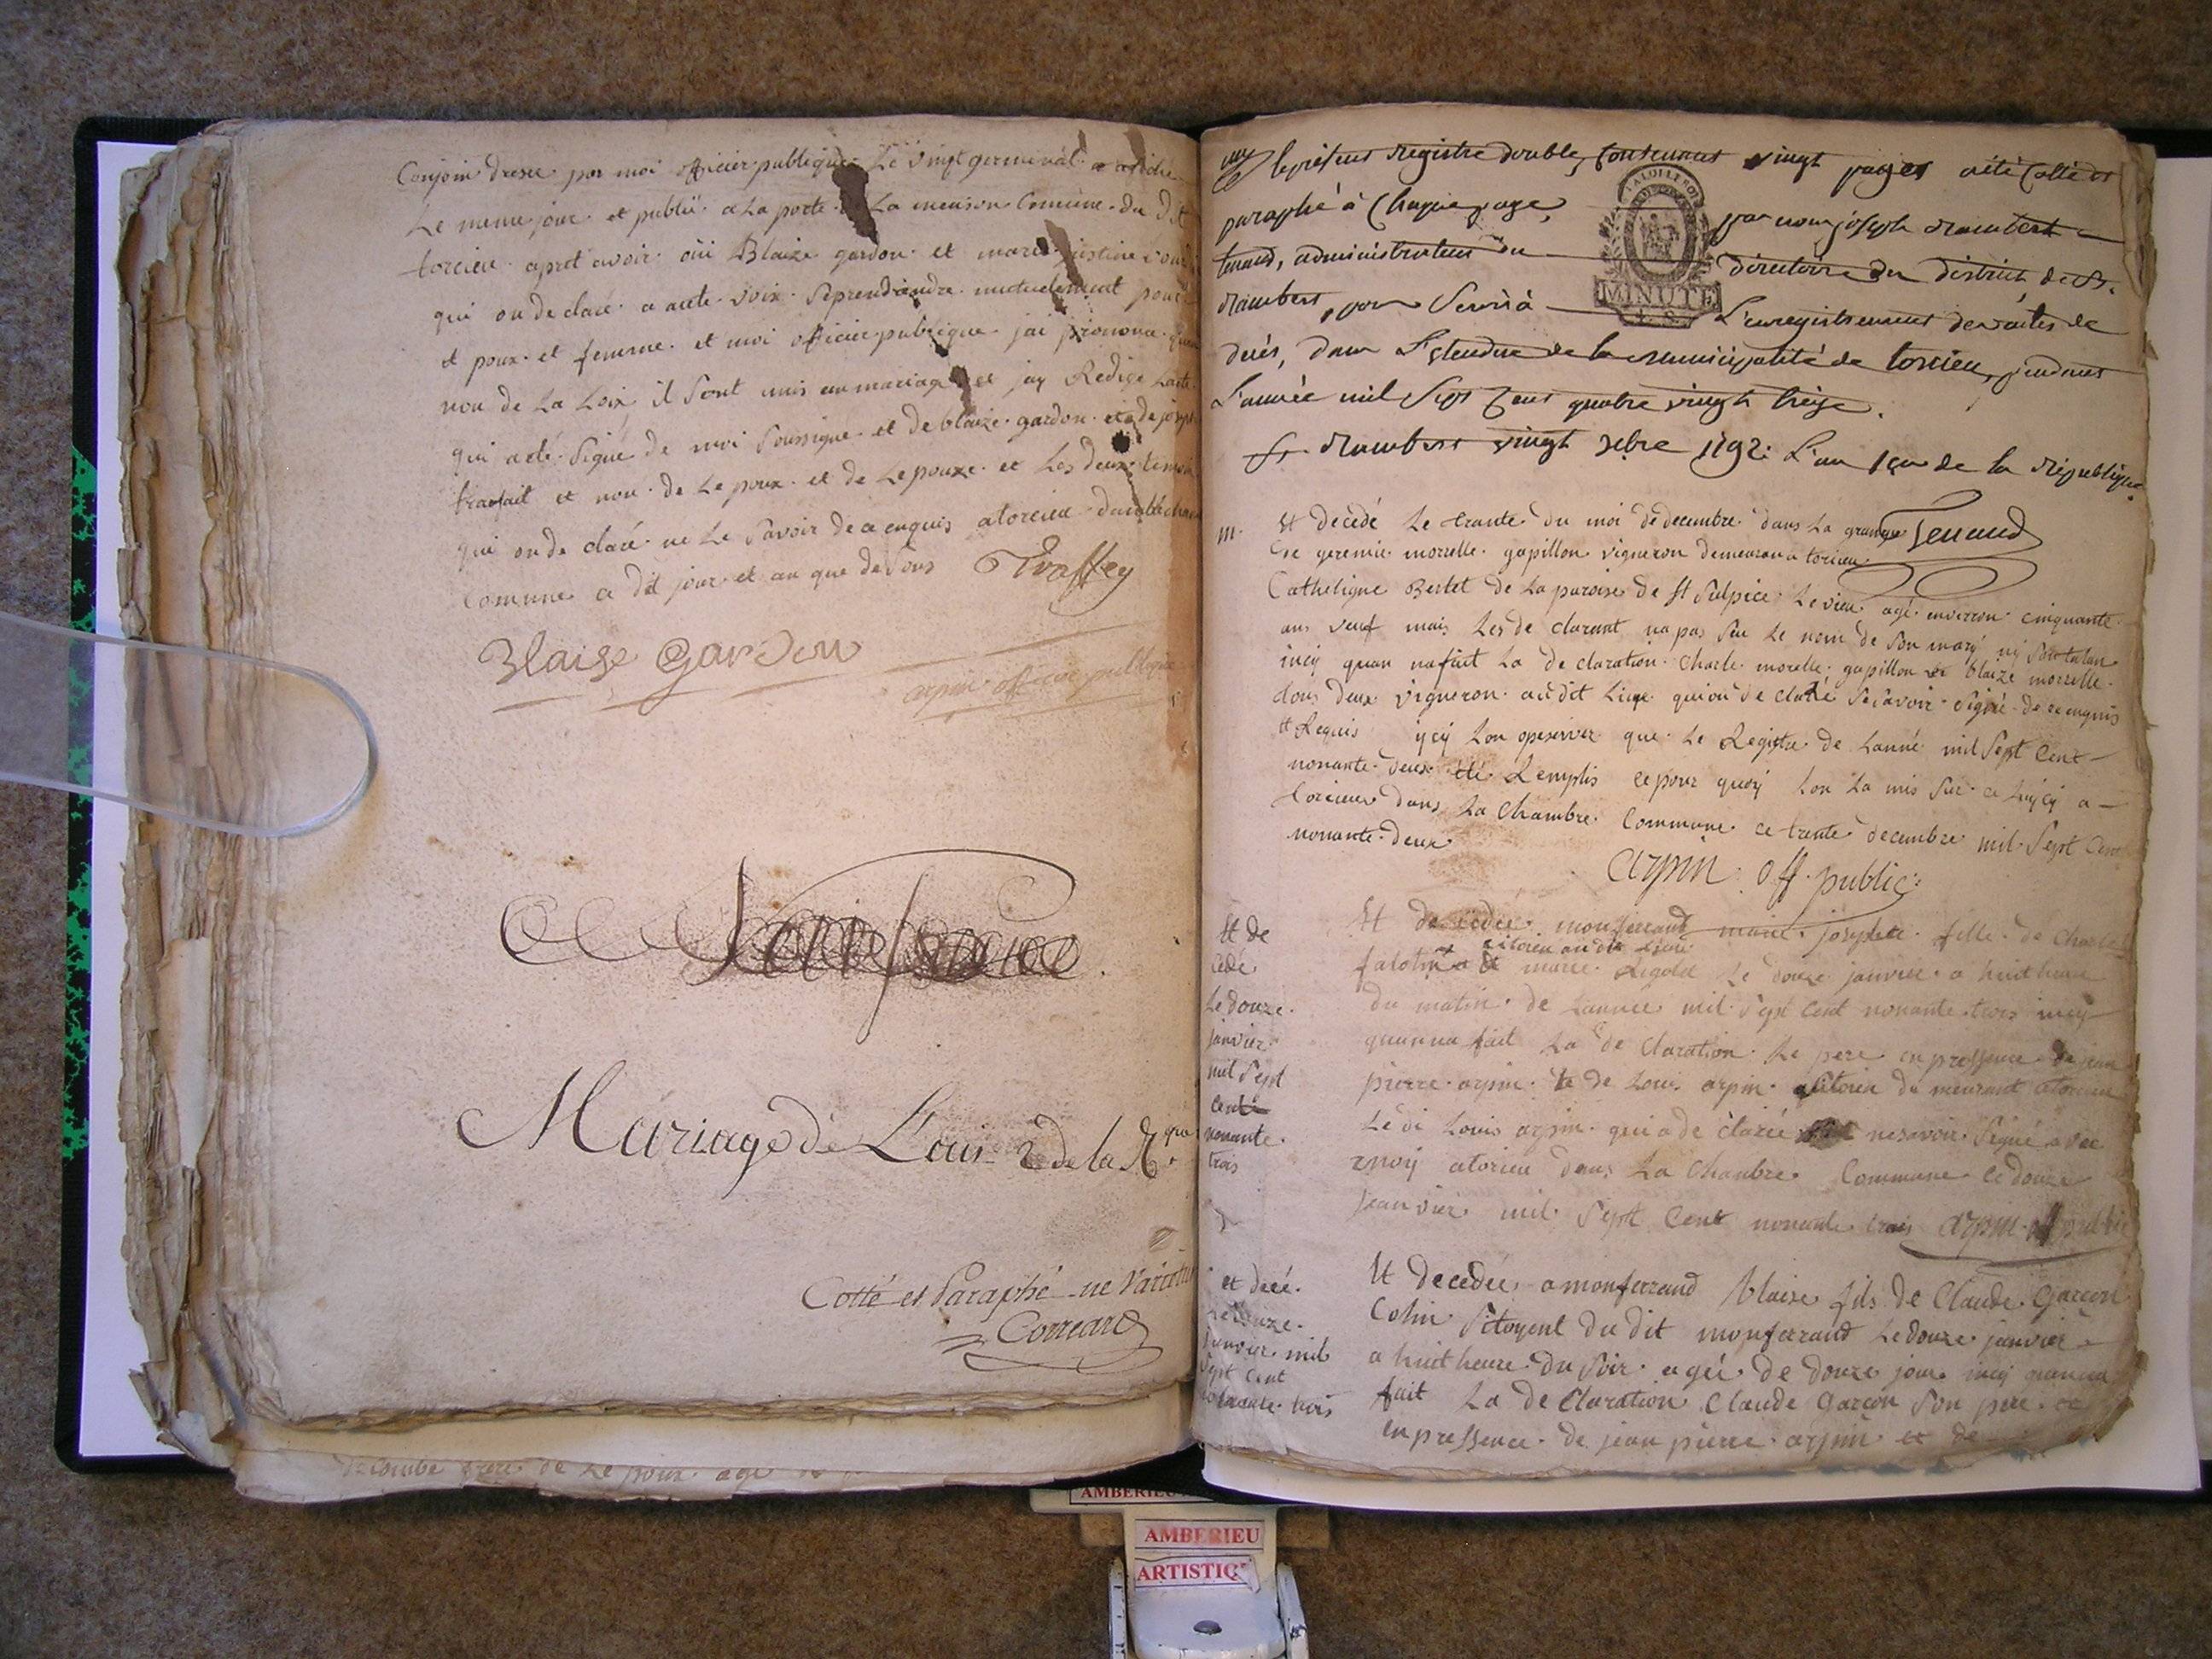 Conjoin dresse par moi officier publique Le vingt germinal a afiche
Le meme jour et publié a La porte La meison Comune du dit
torcieu apret avoir oüi Blaize gardon et marie justine
qui on de claré a aute voix Se prendre mutuelement pour
et poux et femme et moi officier publique jai prononcé
non de La Loix il Sont unis en mariage et jay Redigé Lacte
qui a été Signé de moi Soussigne et de blaize gardon et de joseph
traffait et non de Le poux et de Le pouze et Les deux temoin
qui on de claré ne Le Savoir de ce enquis a torcieu dans La chambre
Comune a dit jour et an que desous Traffey
Blaise Gardon
arpin officier publique
Mariage de L'an 2 de la R.que
Cotté et Paraphé ne Varietur
Correard
decombe frere de Le poux age
le présent registre double, contenant vingt pages a été Cotté et
paraphé à Chaque page, par nous joseph rambert
tenand, administrateur du directoire du district de St.
Rambert, pour Servir à L'enregistrement des actes de
décès, dans L'étendue de la municipalité de torcieu, pendant
L'année mil Sept Cent quatre vingt treize.
St Rambert vingt xbre 1792. L'an 1er de la république
LA LOI LE ROI
MINUTE
4. S.
Tenand
m. Et decedé Le trante du moi de decembre dans La grange
De geremie morrelle gapillon vigneron demeuran a torcieu
Catheligne Bertet de La paroise de St Sulpice Le vieu agé enverron cinquante
ans veuf mais Les de clarant na pas Seu Le nom de Son mary ny Son talan
incy quan nafait La de claration Charle morelle gapillon et blaize morrelle
tous deux vigneron au dit Lieu qui on de claré Se Savoir Signé de ce enquis
et Requis ycy Lon opeserver que Le Registre de Lanné mil Sept Cent
nonante deux été Remplis ce pour quoy Lon La mis Sur ce Luycy a
torcieu dans La Chambre Commune ce trente decembre mil Sept Cent
nonante deux
arpin off. public
Et de
cedé
Le douze
janvier
mil Sept
Cent
nonante
trois
Et de cedée monferrand marie josephte fille de Charle
falotin sitoien au dit Lieu
et de marie Rigolet Le douze janvier a huit heure
du matin de Lannee mil Sept Cent nonante trois incy
quanna fait La de Claration Le pere en pressance de jean
pierre arpin et de Louis arpin sitoien de meurant a torcieu
Le di Louis arpin qui a de clarée ne savoir Signé avec
moy a torcieu dans La Chanbre Commune Ce douze
jeanvier mil Sept Cent nonante trois arpin off public
et decé
Le douze
Janvier mil
Sept Cent
nonante trois
Et decedée a monferrand blaise fils de Claude Garçon
Colin Sitoyent du dit monferrand Le douze janvier
a huit heure du Soir agée de douze jour incy quanna
fait La de Claration Claude Garçon Son pere et
en pressence de jean pierre arpin et de
AMBERIEU
AMBERIEU
ARTISTIQ